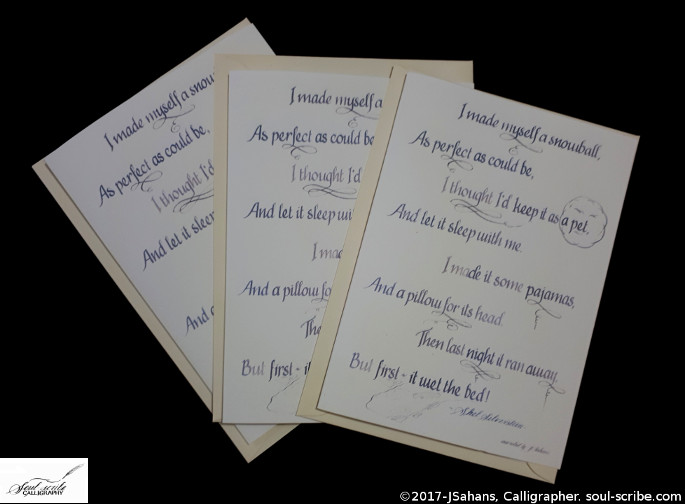 I made myself a snow
As perfect as could be,
I thought I'd
And let it sleep
And a
I made myself a
As perfect as could be
I thought I'd
And let it sleep wi
I mad
And a pillow fo
The
But first - it
I made myself a snowball,
As perfect as could be,
I thought I'd keep it as a pet,
And let it sleep with me.
I made it some pajamas,
And a pillow for its head.
Then last night it ran away
But first - it wet the bed!
- Shel Silverstein
Soul scribe
CALLIGRAPHY
©2017-JSahans, Calligrapher. soul-scribe.com